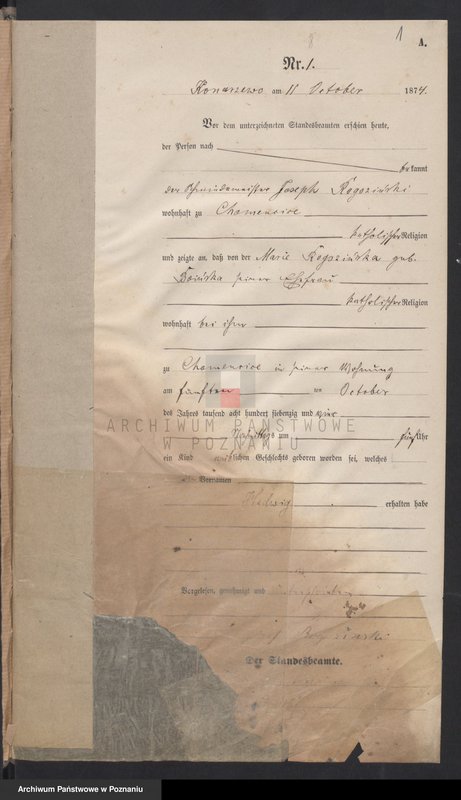 1
A.
Nr. 1.
Konarzewo am 11 October 1874.
Vor dem unterzeichneten Standesbeamten erschien heute,
der Person nach
bekannt
der Schmiedemeister Joseph Rogoziński
wohnhaft zu Chomencice
katholischer Religion
und zeigte an, daß von der Marie Rogozińska geb.
seiner Ehefrau
katholischer Religion
wohnhaft bei ihm
zu Chomencice in seiner Wohnung
am fünften ten October
des Jahres tausend acht hundert siebenzig und vier
mittags um fünf Uhr
ARCHIWUM PAŃSTWOWE
W POZNANIU
ein Kind weiblichen Geschlechts geboren worden sei, welches
Vornamen
Hedwig erhalten habe
Vorgelesen, genehmigt und unterschrieben
Rogoziński
Der Standesbeamte.
Archiwum Państwowe w Poznaniu